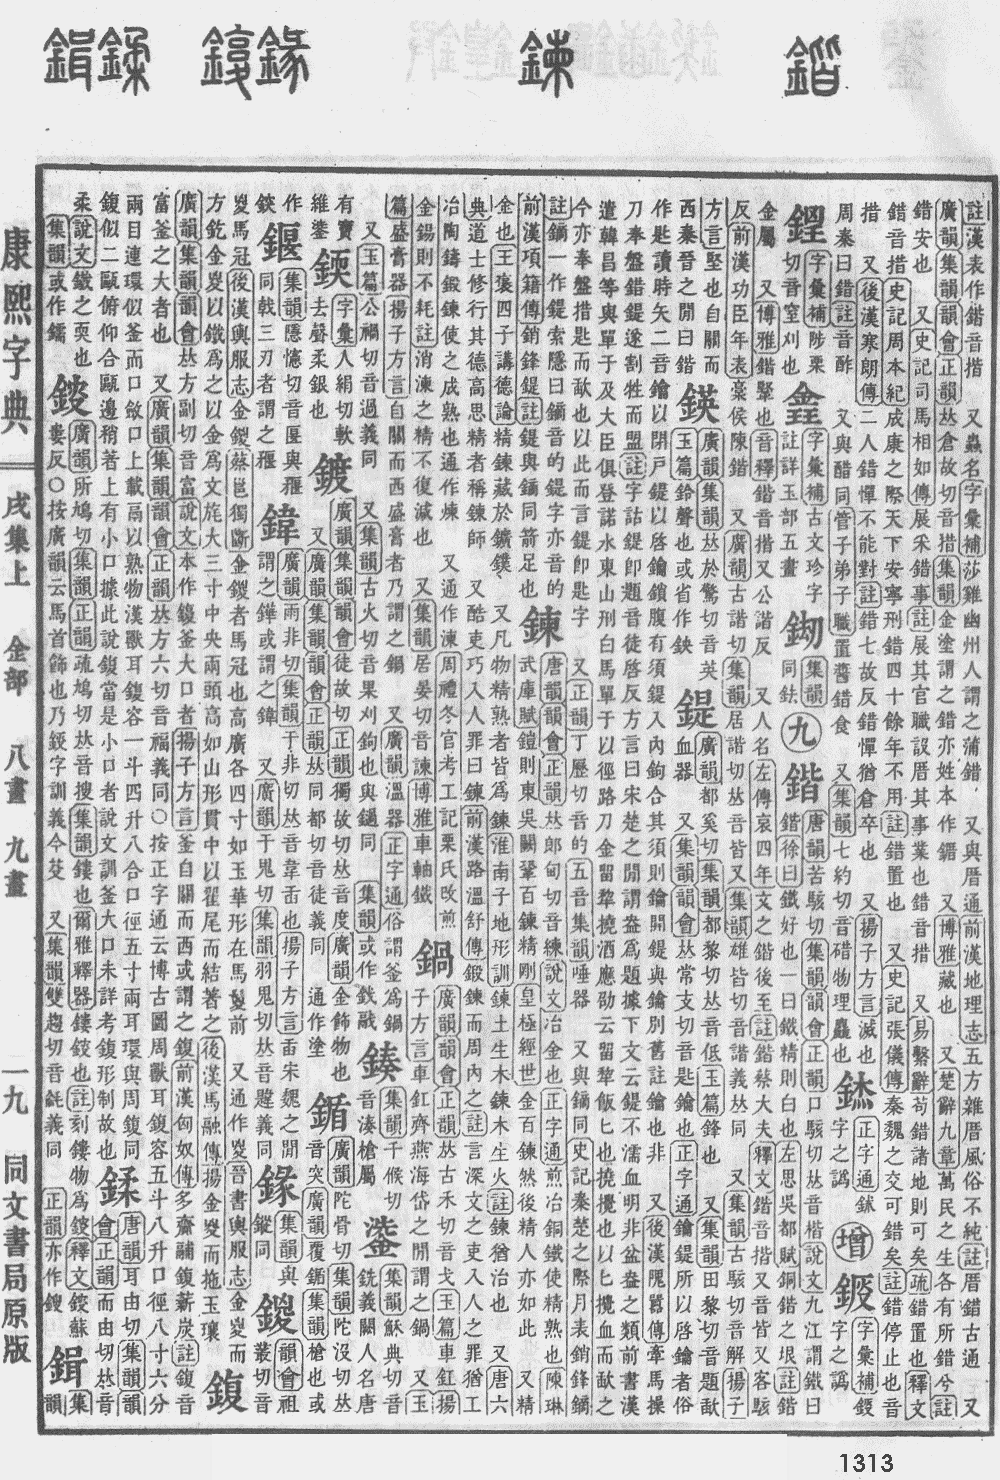 鍇
鍊
註漢表作鍇音揩 又蟲名字彙補莎雞幽州人謂之蒲錯 又與厝通前漢地理志五方雜厝風俗不純註厝錯古通 又
廣韻集韻韻會正韻𠀤倉故切音措集韻金塗謂之錯亦姓本作 又博雅藏也 又楚辭九章萬民之生各有所錯兮註
錯安也 又史記司馬相如傳展采錯事註展其官職設厝其事業也錯音措 又易繫辭苟錯諸地則可矣疏錯置也釋文
錯音措史記周本紀成康之際天下安寧刑錯四十餘年不用註錯置也 又史記張儀傳秦魏之交可錯矣註錯停止也音
措 又後漢寒朗傳二人錯愕不能對註錯七故反錯愕猶倉卒也 又揚子方言滅也
周秦曰錯註音酢 又與醋同管子弟子職置醬錯食 又集韻七約切音碏物理麤也 正字通鉥字之譌 增 字彙補鍛字之譌
字彙補陟栗切音窒刈也 字彙補古文珍字註詳玉部五畫 集韻同 九 鍇 唐韻苦駭切集韻韻會正韻口駭切𠀤音楷說文九江謂鐵曰鍇徐曰鐵好也一曰鐵精則白也左思吳都賦銅鍇之垠註鍇
金屬 又博雅鍇堅也音釋鍇音揩又公諧反 又人名左傳哀四年文之鍇後至註鍇蔡大夫釋文鍇音揩又音皆又客駭
反前漢功臣年表槀侯陳鍇 又廣韻古諧切集韻居諧切𠀤音皆又集韻雄皆切音諧義𠀤同 又集韻古駭切音解揚子
方言堅也自關而西秦晉之閒曰鍇 鍈 廣韻集韻𠀤於驚切音英玉篇鈴聲也或省作鉠 鍉 廣韻都奚切集韻都黎切𠀤音低玉篇鋒也血器 又集韻田黎切音題歃
又集韻韻會𠀤常支切音匙鑰也正字通鑰鍉所以啓鑰者俗作匙讀時矢二音鑰以閉戶鍉以啓鑰鎖腹有須鍉入內鉤合其須則鑰開鍉與鑰別舊註鑰也非 又後漢隗囂傳牽馬操
刀奉盤錯鍉遂割牲而盟註字詁鍉卽題音徒啓反方言曰宋楚之閒謂盎爲題據下文云鍉不濡血明非盆盎之類前書漢
遣韓昌等與單于及大臣俱登諾水東山刑白馬單于以徑路刀金留犂撓酒應劭云留犂飯匕也撓攪也以匕攪血而歃之
今亦奉盤措匙而歃也以此而言鍉卽匙字 又正韻丁歷切音的五音集韻唾器 又與鏑同史記秦楚之際月表銷鋒鏑
註鏑一作鍉索隱曰鏑音的鍉字亦音的
前漢項籍傳銷鋒鍉註鍉與鏑同箭足也 鍊 唐韻集韻韻會正韻𠀤郎甸切音練說文冶金也正字通煎冶銅鐵使精熟也陳琳武庫賦鎧則東吳闕鞏百鍊精剛皇極經世金百鍊然後精人亦如此 又精
金也王襃四子講德論精鍊藏於鑛樸 又凡物精熟者皆爲鍊淮南子地形訓鍊土生木鍊木生火註鍊猶治也 又唐六
典道士修行其德高思精者稱鍊師 又酷吏巧入人罪曰鍊前漢路溫舒傳鍛鍊而周內之註言深文之吏入人之罪猶工
冶陶鑄鍛鍊使之成熟也通作煉 又通作湅周禮冬官考工記㮚氏改煎
金錫則不耗註消湅之精不復減也 又集韻居晏切音諫博雅車軸鐵 鍋 廣韻韻會正韻𠀤古禾切音戈玉篇車釭揚子方言車釭齊燕海岱之閒謂之鍋 又玉
篇盛膏器揚子方言自關而西盛膏者乃謂之鍋 又廣韻溫器正字通俗謂釜爲鍋
又玉篇公禍切音過義同 又集韻古火切音果刈鉤也與鐹同 集韻或作 鍭 集韻千候切音湊槍屬 集韻穌典切音銑義闕人名唐
有寶 字彙人絹切軟去聲柔銀也 鍍 廣韻集韻韻會徒故切正韻獨故切𠀤音度廣韻金飾物也
維鍙 又廣韻集韻韻會正韻𠀤同都切音徒義同 通作塗 鍎 廣韻陀骨切集韻陀沒切𠀤音突廣韻覆鍎集韻槍也或
作 鍡 集韻隱幰切音匽與 同戟三刃者謂之 鍏 廣韻雨非切集韻于非切𠀤音韋臿也揚子方言臿宋魏之閒謂之鏵或謂之鍏 又廣韻于鬼切集韻羽鬼切𠀤音韙義同 集韻與鏦同 鍐 韻會祖叢切音
㚇馬冠後漢輿服志金鍐蔡邕獨斷金鍐者馬冠也高廣各四寸如玉華形在馬髦前 又通作㚇晉書輿服志金㚇而
方釳金㚇以鐵爲之以金爲文旄大三寸中央兩頭高如山形貫中以翟尾而結著之後漢馬融傳揚金㚇而拖玉瓖 鍑
廣韻集韻韻會𠀤方副切音富說文本作鍑釜大口者揚子方言釜自關而西或謂之鍑前漢匈奴傳多齎鬴鍑薪炭註鍑音
富釜之大者也 又廣韻集韻韻會正韻𠀤方六切音福義同○按正字通云博古圖周獸耳鍑容五斗八升口徑八寸六分
兩目連環似釜而口斂口上載鬲以熟物漢獸耳鍑容一斗四升八合口徑五寸兩耳環與周鍑同
鍑似二甌俯仰合甌邊稍著上有小口據此說鍑當是小口者說文訓釜大口未詳考鍑形制故也 鍒 唐韻耳由切集韻韻會正韻而由切𠀤音
柔說文鐵之耎也 鍐 廣韻所鳩切集韻正韻疏鳩切𠀤音搜集韻鏤也爾雅釋器鏤鋑也註刻鏤物爲鋑釋文鋑蘇
集韻或作鑐 婁反○按廣韻云馬首飾也乃鋑字訓義今芟 又集韻雙趨切音毹義同 正韻亦作鎪 鍓 集韻
康熙字典
戌集上 金部 八畫 九畫
一九
同文書局原版
1313